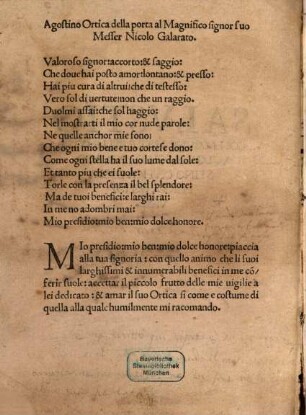 Agostino Ortica della porta al Magnifico signor suo
Messer Nicolo Galarato.
Valoroso signor: accorto: & saggio:
Che doue hai posto amor: lontano: & presso:
Hai piu cura di altrui: che di te stesso:
Vero sol di uertute: non che un raggio.
Duolmi assai: che sol haggio:
Nel mostrarti il mio cor nude parole:
Ne quelle anchor mie sono:
Che ogni mio bene e tuo cortese dono:
Come ogni stella ha il suo lume dal sole:
Et tanto piu che ei suole:
Torle con la presenza il bel splendore:
Ma de tuoi beneficii: e larghi rai:
In me no adombri mai:
Mio presidio: mio ben: mio dolce honore.
MIo presidio: mio ben: mio dolce honore: piaccia
alla tua signoria: con quello animo che li suoi
larghissimi & innumerabili benefici in me cõ/
ferir suole: accettar il piccolo frutto delle mie uigilie a
lei dedicato: & amar il suo Ortica si come e costume di
quella alla quale humilmente mi racomando.
Bayerische
Staatsbibliothek
München